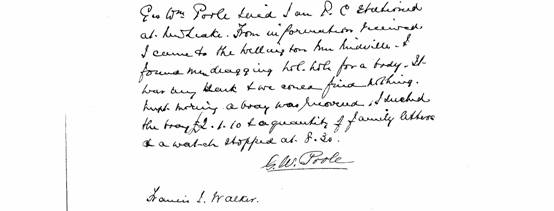 Geo Wm Poole said I am P. C stationed
at New Leake. From information received
I came to the Wellington Inn Midville. I
found men dragging hol. hole for a body. It
was very dark & we could find nothing.
Next morning a body was recovered. I searched
the body £2-1-10 & a quantity of family letters
& a watch stopped at 8.30.
G. W. Poole
Francis S. Walker.